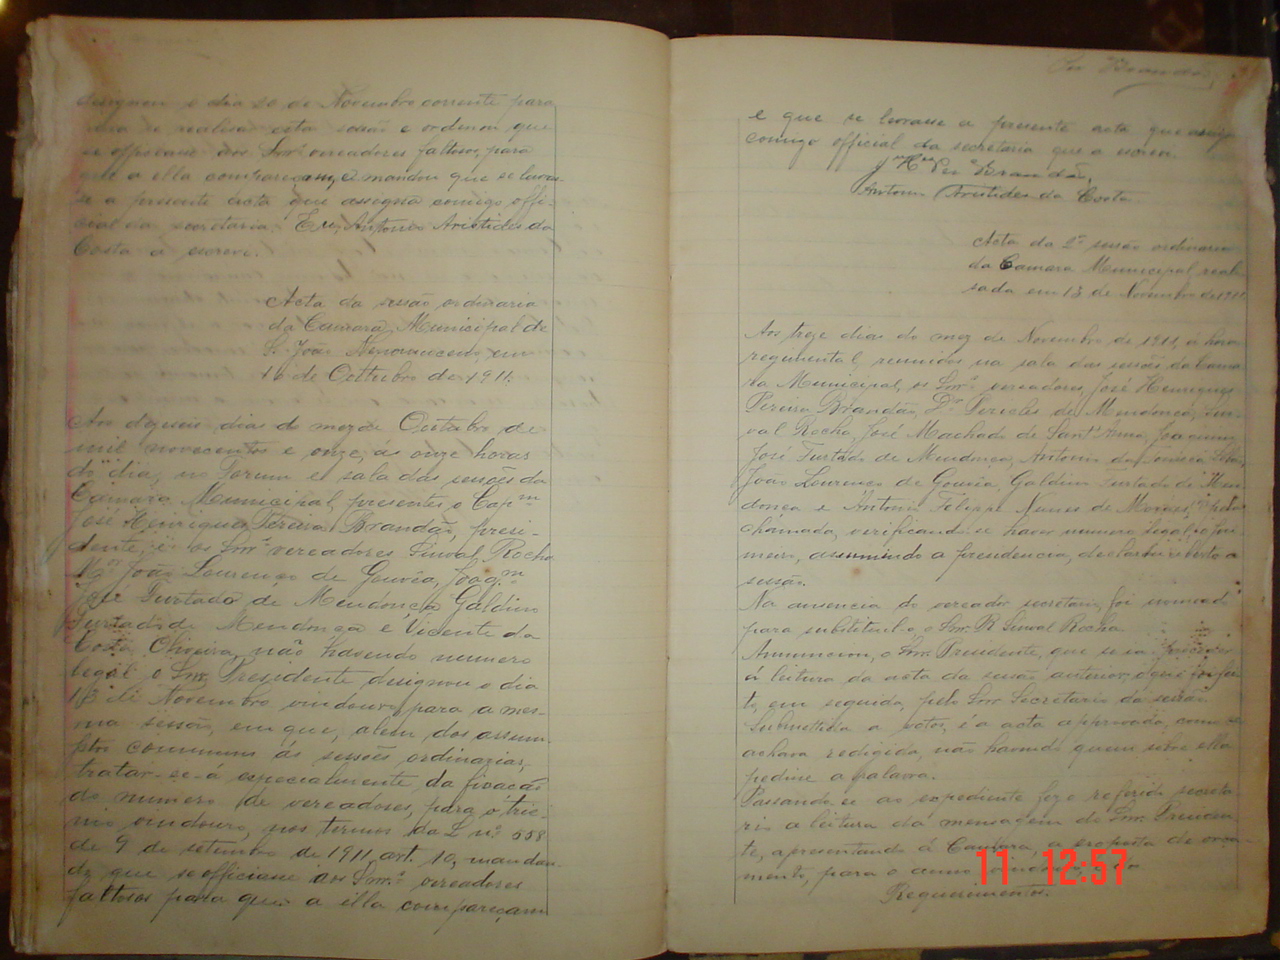 designou o dia 20 de Novembro corrente para
se realisar esta sessão e ordenou que
se officiasse aos Snrs. vereadores faltosos, para
que a ella compareçam, e mandou que se lavras-
se a presente acta que assigna comigo offi-
cial da secretaria. Eu, Antonio Aristides da
Costa a escrevi.
Acta da sessão ordinaria
da Camara Municipal de
S. João Nepomuceno, em
16 de Outubro de 1911.
Aos dezeseis dias do mez de Outubro de
mil novecentos e onze, ás onze horas
do dia, no Forum e sala das sessões da
Camara Municipal, presentes o Capm
José Henriques Pereira Brandão, presi-
dente, e os Snrs. vereadores Sinval Rocha
João Lourenço de Gouvêa, Joaqm
José Furtado de Mendonça, Galdino
Furtado de Mendonça e Vicente da
Costa Oliveira, não havendo numero
legal o Snr. Presidente designou o dia
13 de Novembro vindouro, para a mes-
ma sessão, em que, alem dos assum-
ptos communs ás sessões ordinarias,
tratar-se-á especialmente da fixação
do numero de vereadores, para o trie-
nio vindouro, nos termos da L nº 558
de 9 de setembro de 1911, art. 10, mandan-
do que se officiasse aos Snrs. vereadores
faltosos para que a ella compareçam
e que se lavrasse a presente acta que assigna
comigo official da secretaria que a escrevi.
Brandão,
Antonio Aristides da Costa
Acta da 2ª sessão ordinaria
da Camara Municipal, reali-
sada em 13 de Novembro de 1911
Aos treze dias do mez de Novembro de 1911, á hora
regimental, reunidos na sala das sessões da Cama-
ra Municipal, os Snrs. vereadores José Henriques
Pereira Brandão, Dr. Pericles de Mendonça, Sin-
val Rocha, José Machado de Sant'Anna, Joaquim
José Furtado de Mendonça, Antonio da Fonseca
João Lourenço de Gouvêa, Galdino Furtado de Men-
donça e Antonio Felippe Nunes de Moraes, pela
chamada, verificando-se haver numero legal, o pri-
meiro, assumindo a presidencia, declarou aberta a
sessão.
Na ausencia do vereador secretario, foi nomeado
para substituil-o, o Snr. Sinval Rocha.
Annunciou, o Snr. Presidente, que se ia proceder
á leitura da acta da sessão anterior, o que foi fei-
to, em seguida, pelo Snr. Secretario da sessão.
Submettida a votos, é a acta approvada, como se
achava redigida, não havendo quem sobre ella
pedisse a palavra.
Passando-se ao expediente fez o referido secreta-
rio a leitura da mensagem do Snr. Presiden-
te, apresentando á Camara, a proposta de orça-
mento, para o anno
Requerimentos.
11 12:57